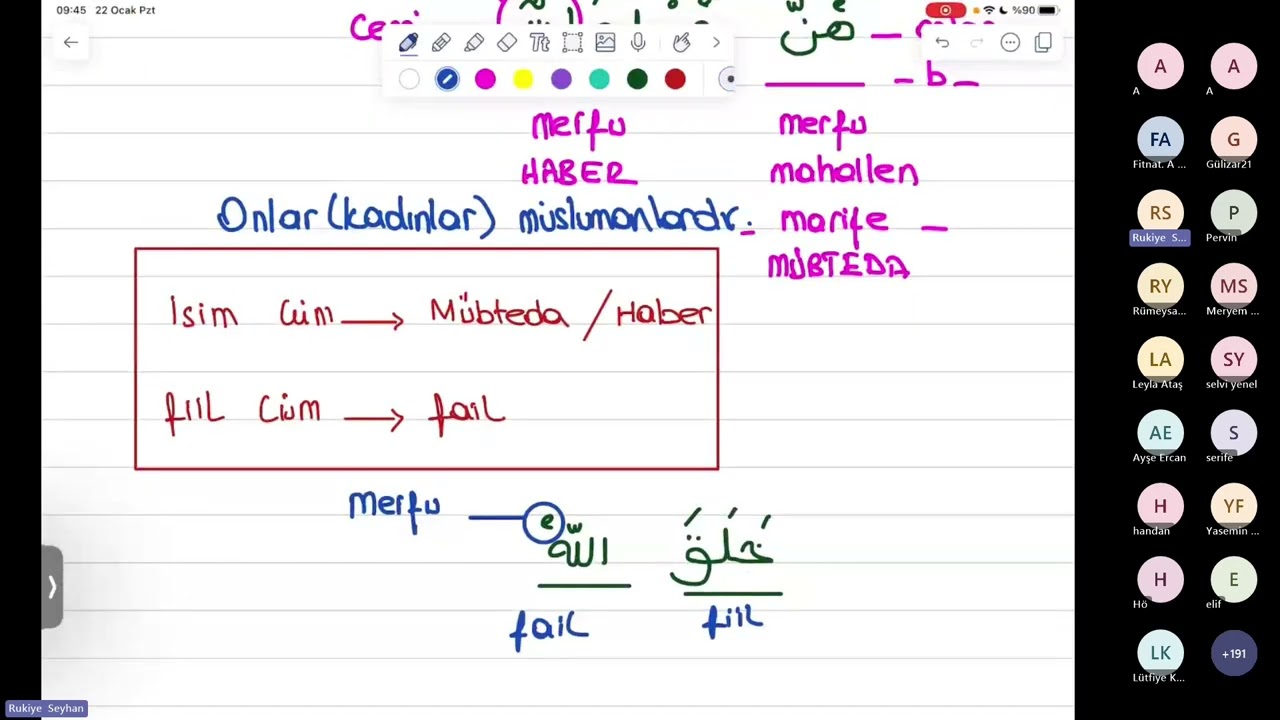 09:45 22 Ocak Pzt
%90
Tt
هن
- b -
merfu merfu
HABER mahallen
Onlar (kadınlar) müslümanlardır. marife -
MÜBTEDA
İsim Cüm → Mübteda / Haber
fiil Cüm → fail
merfu
خَلَقَ اللّٰهُ
fail fiil
A A
A A
FA G
Fitnat. A ... Gülizar21
RS P
Rukiye S... Pervin
RY MS
Rümeysa... Meryem ...
LA SY
Leyla Ataş selvi yenel
AE S
Ayşe Ercan serife
H YF
handan Yasemin ...
H E
Hö elif
LK +191
Lütfiye K...
Rukiye Seyhan